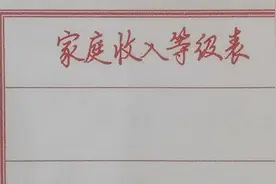 家庭收入等级表